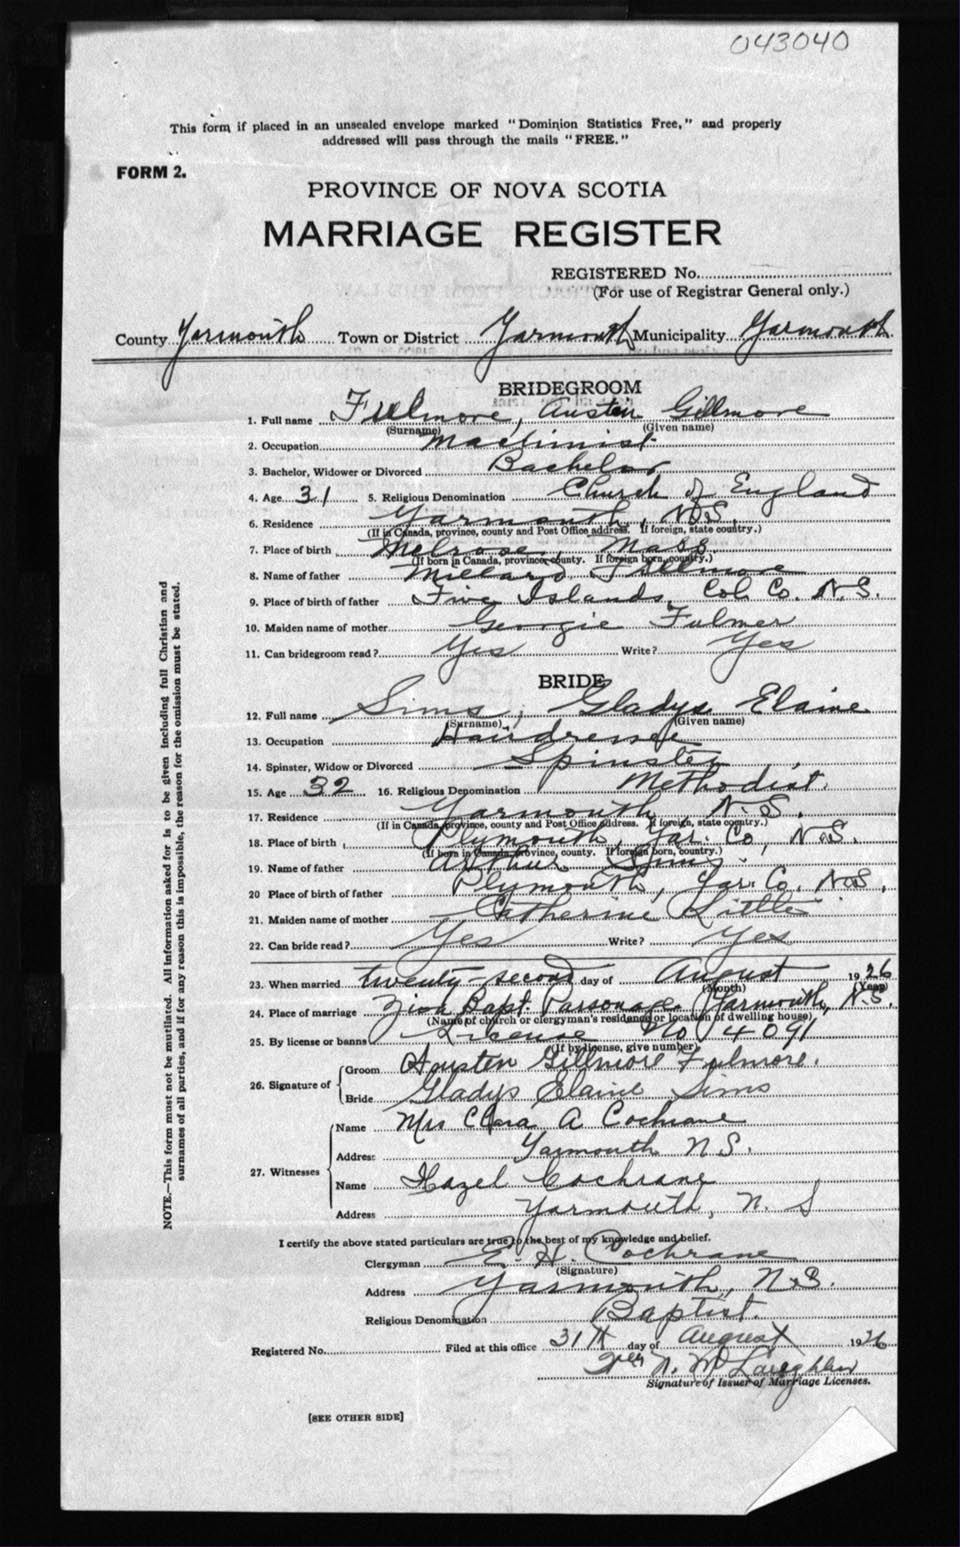 043040
This form if placed in an unsealed envelope marked "Dominion Statistics Free," and properly
addressed will pass through the mails "FREE."
FORM 2.
PROVINCE OF NOVA SCOTIA
MARRIAGE REGISTER
REGISTERED No.
(For use of Registrar General only.)
County Yarmouth Town or District Yarmouth Municipality Yarmouth
BRIDEGROOM
1. Full name Fulmore, Austen Gillmore
(Surname) (Given name)
2. Occupation Machinist
3. Bachelor, Widower or Divorced Bachelor
4. Age 31 5. Religious Denomination Church of England
6. Residence Yarmouth, N.S.
(If in Canada, province, county and Post Office address. If foreign, state country.)
7. Place of birth Melrose, Mass.
(If born in Canada, province, county. If foreign born, country.)
8. Name of father Millard Fullmore
9. Place of birth of father Five Islands, Col. Co. N.S.
10. Maiden name of mother Georgie Fulmer
11. Can bridegroom read? Yes Write? Yes
BRIDE
12. Full name Sims, Gladys Elaine
(Surname) (Given name)
13. Occupation
14. Spinster, Widow or Divorced Spinster
15. Age 32 16. Religious Denomination Methodist.
17. Residence Yarmouth, N.S.
(If in Canada, province, county and Post Office address. If foreign, state country.)
18. Place of birth Plymouth, Yar. Co, N.S.
(If born in Canada, province, county. If foreign born, country.)
19. Name of father Arthur Sims
20 Place of birth of father Plymouth, Yar. Co. N.S.
21. Maiden name of mother Catherine Little
22. Can bride read? Yes Write? Yes
23. When married twenty-second day of August 1926
(Month) (Year)
24. Place of marriage Zion Bapt. Parsonage Yarmouth, N.S.
(Name of church or clergyman's residence or location of dwelling house)
25. By license or banns License No 14091
(If by license, give number)
26. Signature of Groom Austen Gillmore Fulmore.
Bride Gladys Elaine Sims
27. Witnesses Name Mrs Clara A Cochrane
Address Yarmouth N.S.
Name Hazel Cochrane
Address Yarmouth, N. S
I certify the above stated particulars are true to the best of my knowledge and belief.
Clergyman E. H. Cochrane
(Signature)
Address Yarmouth, N.S.
Religious Denomination Baptist.
Registered No. Filed at this office 31st day of August 1926
N. McLaughlin
Signature of Issuer of Marriage Licenses.
[SEE OTHER SIDE]
NOTE.—This form must not be mutilated. All information asked for is to be given including full Christian and
surnames of all parties, and if for any reason this is impossible, the reason for the omission must be stated.